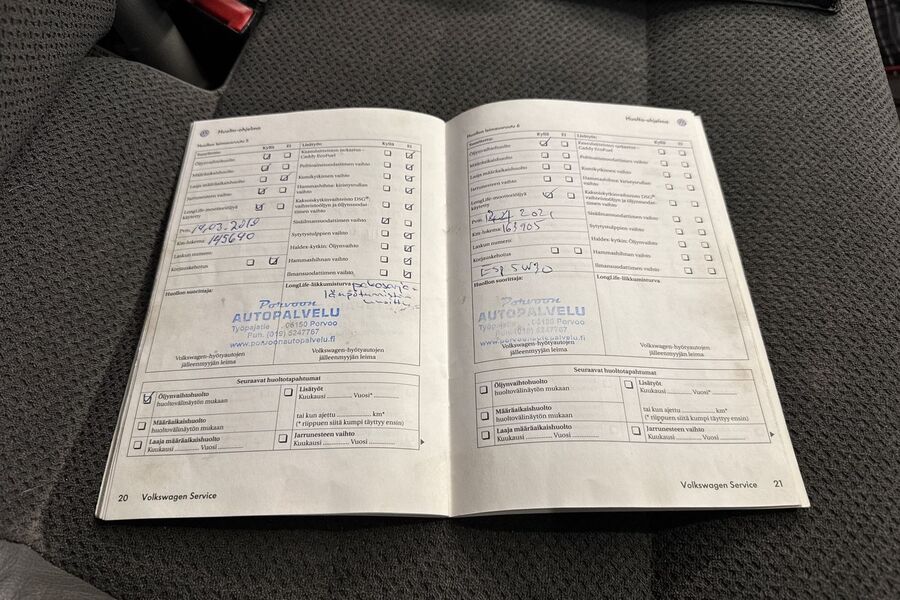 Huolto-ohjelma
Huollon leimausruutu 5
Kyllä Ei
Öljynvaihtohuolto
Määräaikaishuolto
Laaja määräaikaishuolto
Jarrunesteen vaihto
LongLife-moottoriöljyä
käytetty
Pvm. 19.03.2018
Km-lukema: 145640
Laskun numero:
Korjauskehotus
Lisätyöt: Kyllä Ei
Kaasulaitteiston tarkastus –
Caddy EcoFuel
Polttoainesuodattimen vaihto
Raitisilmasuodattimen vaihto
Sytytystulppien vaihto
Haldex-kytkin: Öljynvaihto
Hammashihnan vaihto
Ilmansuodattimen vaihto
Huollon suorittaja:
LongLife-liikkumisturva
Porvoon
AUTOPALVELU
Työpajatie 06150 Porvoo
Puh. (019) 5247767
www.porvoonautopalvelu.fi
Volkswagen-hyötyautojen
jälleenmyyjän leima
Volkswagen-hyötyautojen
jälleenmyyjän leima
Seuraavat huoltotapahtumat
Öljynvaihtohuolto
huoltovälinäytön mukaan
Määräaikaishuolto
huoltovälinäytön mukaan
Laaja määräaikaishuolto
Kuukausi ............ Vuosi ............
Lisätyöt
Kuukausi ............ Vuosi*............
tai kun ajettu ............ km*
(* riippuen siitä kumpi täyttyy ensin)
Jarrunesteen vaihto
Kuukausi ............ Vuosi ............
20 Volkswagen Service
Huolto-ohjelma
Huollon leimausruutu 6
Kyllä Ei
Öljynvaihtohuolto
Määräaikaishuolto
Laaja määräaikaishuolto
Jarrunesteen vaihto
LongLife-moottoriöljyä
käytetty
Pvm. 2021
Km-lukema: 163905
Laskun numero:
Korjauskehotus
ESP 5W30
Lisätyöt: Kyllä Ei
Kaasulaitteiston tarkastus –
Caddy EcoFuel
Polttoainesuodattimen vaihto
Hammashihna: kiristysrullan
vaihto
Kaksoiskytkinvaihteisto DSG®:
vaihteistoöljyn ja öljynsuodat-
timen vaihto
Sisäilmansuodattimen vaihto
Sytytystulppien vaihto
Haldex-kytkin: Öljynvaihto
Hammashihnan vaihto
Ilmansuodattimen vaihto
Huollon suorittaja:
LongLife-liikkumisturva
Porvoon
AUTOPALVELU
Työpajatie 06150 Porvoo
Puh. (019) 5247767
www.porvoonautopalvelu.fi
Volkswagen-hyötyautojen
jälleenmyyjän leima
Volkswagen-hyötyautojen
jälleenmyyjän leima
Seuraavat huoltotapahtumat
Öljynvaihtohuolto
huoltovälinäytön mukaan
Määräaikaishuolto
huoltovälinäytön mukaan
Laaja määräaikaishuolto
Kuukausi ............ Vuosi ............
Lisätyöt
Kuukausi ............ Vuosi*............
tai kun ajettu ............ km*
(* riippuen siitä kumpi täyttyy ensin)
Jarrunesteen vaihto
Kuukausi ............ Vuosi ............
Volkswagen Service 21